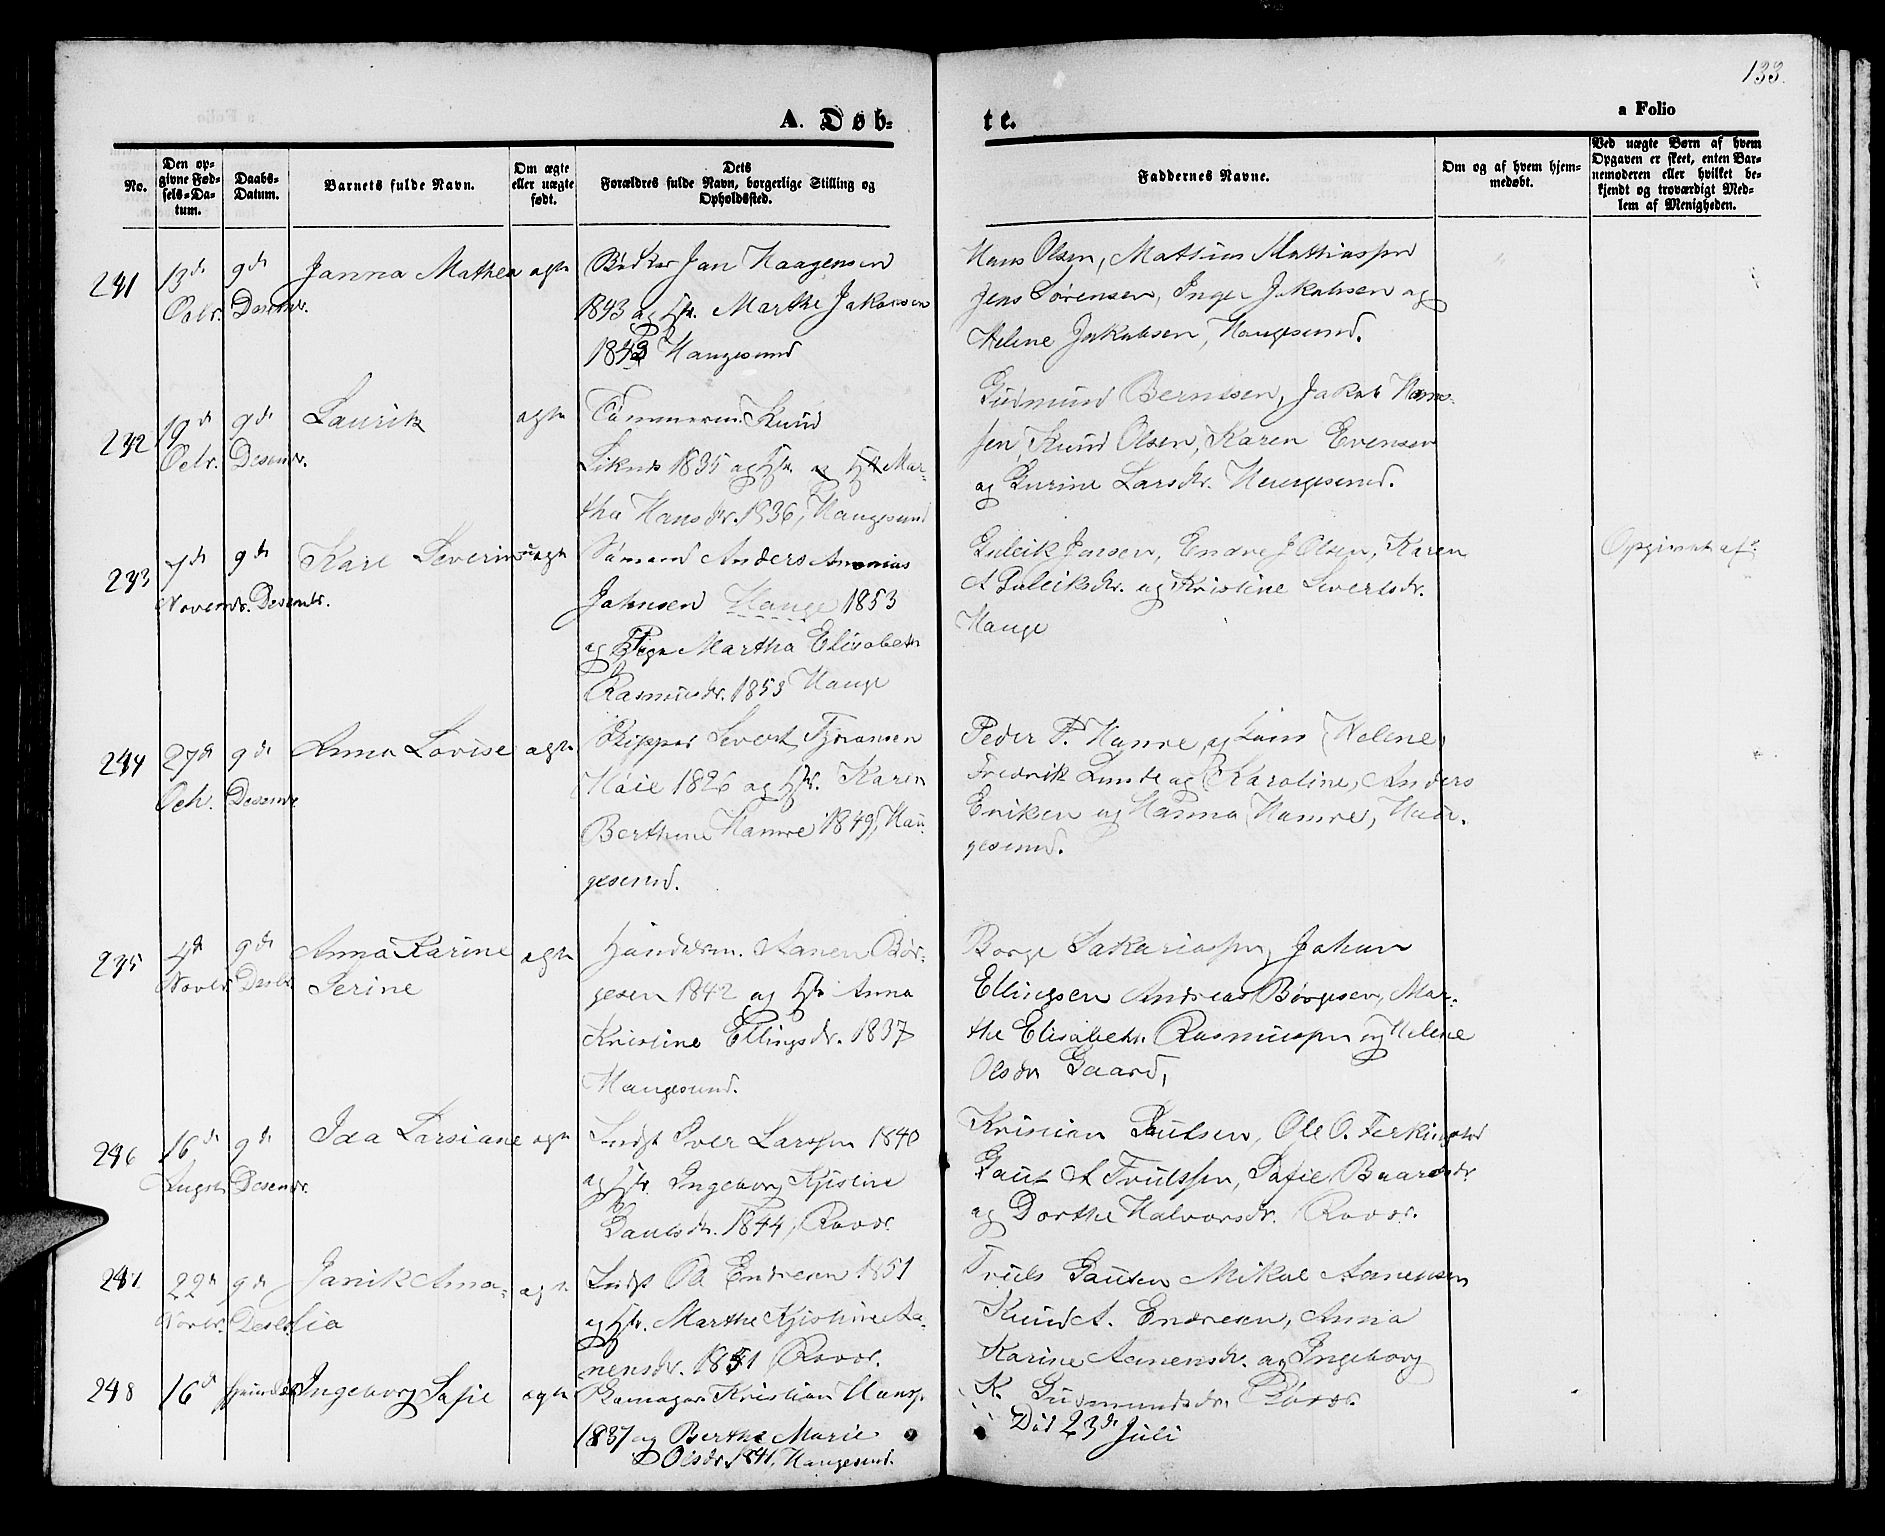 133.
a Folio
A. Døb-
te.
No.
Den op-
givne Fød-
sels-Da-
tum.
Daabs-
Datum.
Barnets fulde Navn.
Om ægte
eller uægte
født.
Dets
Forældres fulde Navn, borgerlige Stilling og
Opholdssted.
Faddernes Navne.
Om og af hvem hjem-
medøbt.
Ved uægte Børn af hvem
Opgaven er skeet, enten Bar-
nemoderen eller hvilket be-
kjendt og troværdigt Med-
lem af Menigheden.
241 13de 9de Janna Mathea ægte Bødker Jan Haagensen
Desembr. 1843 og Hr. Marthe Jakobsen
1843 Haugesund
Hans Olsen, Mattias Mattiassen
Jens Sørensen, Inger Jakobsen og
Helene Jakobsen, Haugesund.
242 19de 9de Laurik ægte Tømmerm. Knud
Octr. Desembr. 1835 og Hr. og Hr. Mar-
tha Hansdr. 1836, Haugesund
Gudmund Berntsen, Jakob Han-
sen, Knud Olsen, Karen Evensen
og Gurine Larsdr. Haugesund.
243 7de 9de Karl Severin uægte Sømand Anders Antonius
Novembr. Desembr. Johnsen Hauge 1853
og Pige Martha Elisabeth
Rasmusdr. 1853 Hauge
Guleik Jansen, Endre J Olsen, Karen
A Guleiksdr. og Kristine Severtsdr.
Hauge
Opgivet af
244 27de 9de Anna Lovise ægte Skipper Severt Tjøransen
Octr. Desembr. Høie 1826 og Hr. Karen
Berthine Hamre 1849, Hau-
gesund.
Peder P. Hamre og Helene,
Fredrik Lunde og Karoline, Anders
Eriksen og Hanna Hamre, Hau-
gesund.
245 4de 9de Anna Karine ægte Handelsm. Aanen Bør-
Novbr. Desbr. Serine gesen 1842 og Hr Anna
Kristine Ellingsdr. 1837
Haugesund.
Børge Sakariassen, Johan
Ellingsen Andreas Børgesen, Mar-
the Elisabeth Rasmussen og Helene
Olsdr Gaard,
246 16de 9de Ida Larsiane ægte Indst Iver Larssen 1840
August Desembr. og Hr. Ingeborg Kjistine
Gautsdr. 1844, Røvær
Kristian Gautsen, Ole O. Ferkingstad
Gaut A Trulssen, Sofie Baardsdr.
og Dorthe Halvorsdr. Røvær.
247 22de 9de Janik Ama- ægte Indst Ole Endresen 1851
Novbr. Desbr. lia og Hr. Marthe Kjistine Aa-
nensdr. 1851 Røvær.
Truls Gautsen Mikal Aanensen
Knud A. Endresen, Anna
Karine Aanensdr. og Ingeborg
K. Gudmundsdr. Røvær.
248 16de hjemdøbt Ingeborg Sofie ægte Kristian Hanss.
1837 og Berthe Marie
Olsdr. 1841. Haugesund.
Død 23de Juli